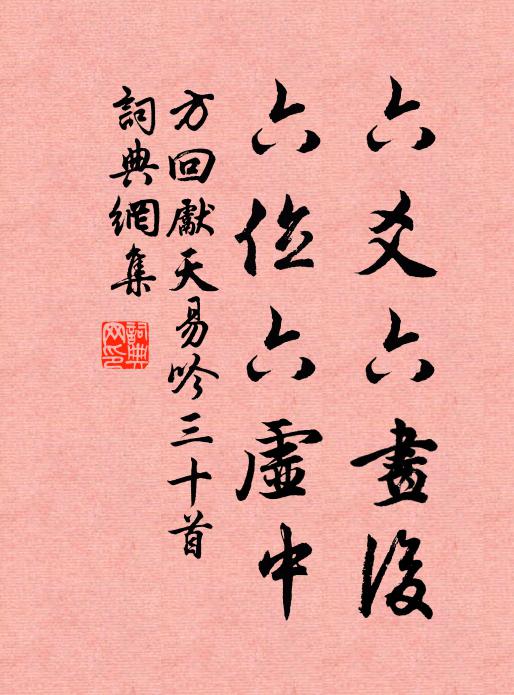 六爻六畫後
六位六虛中
方回先天易吟三十首
詞典網集
詞典网印